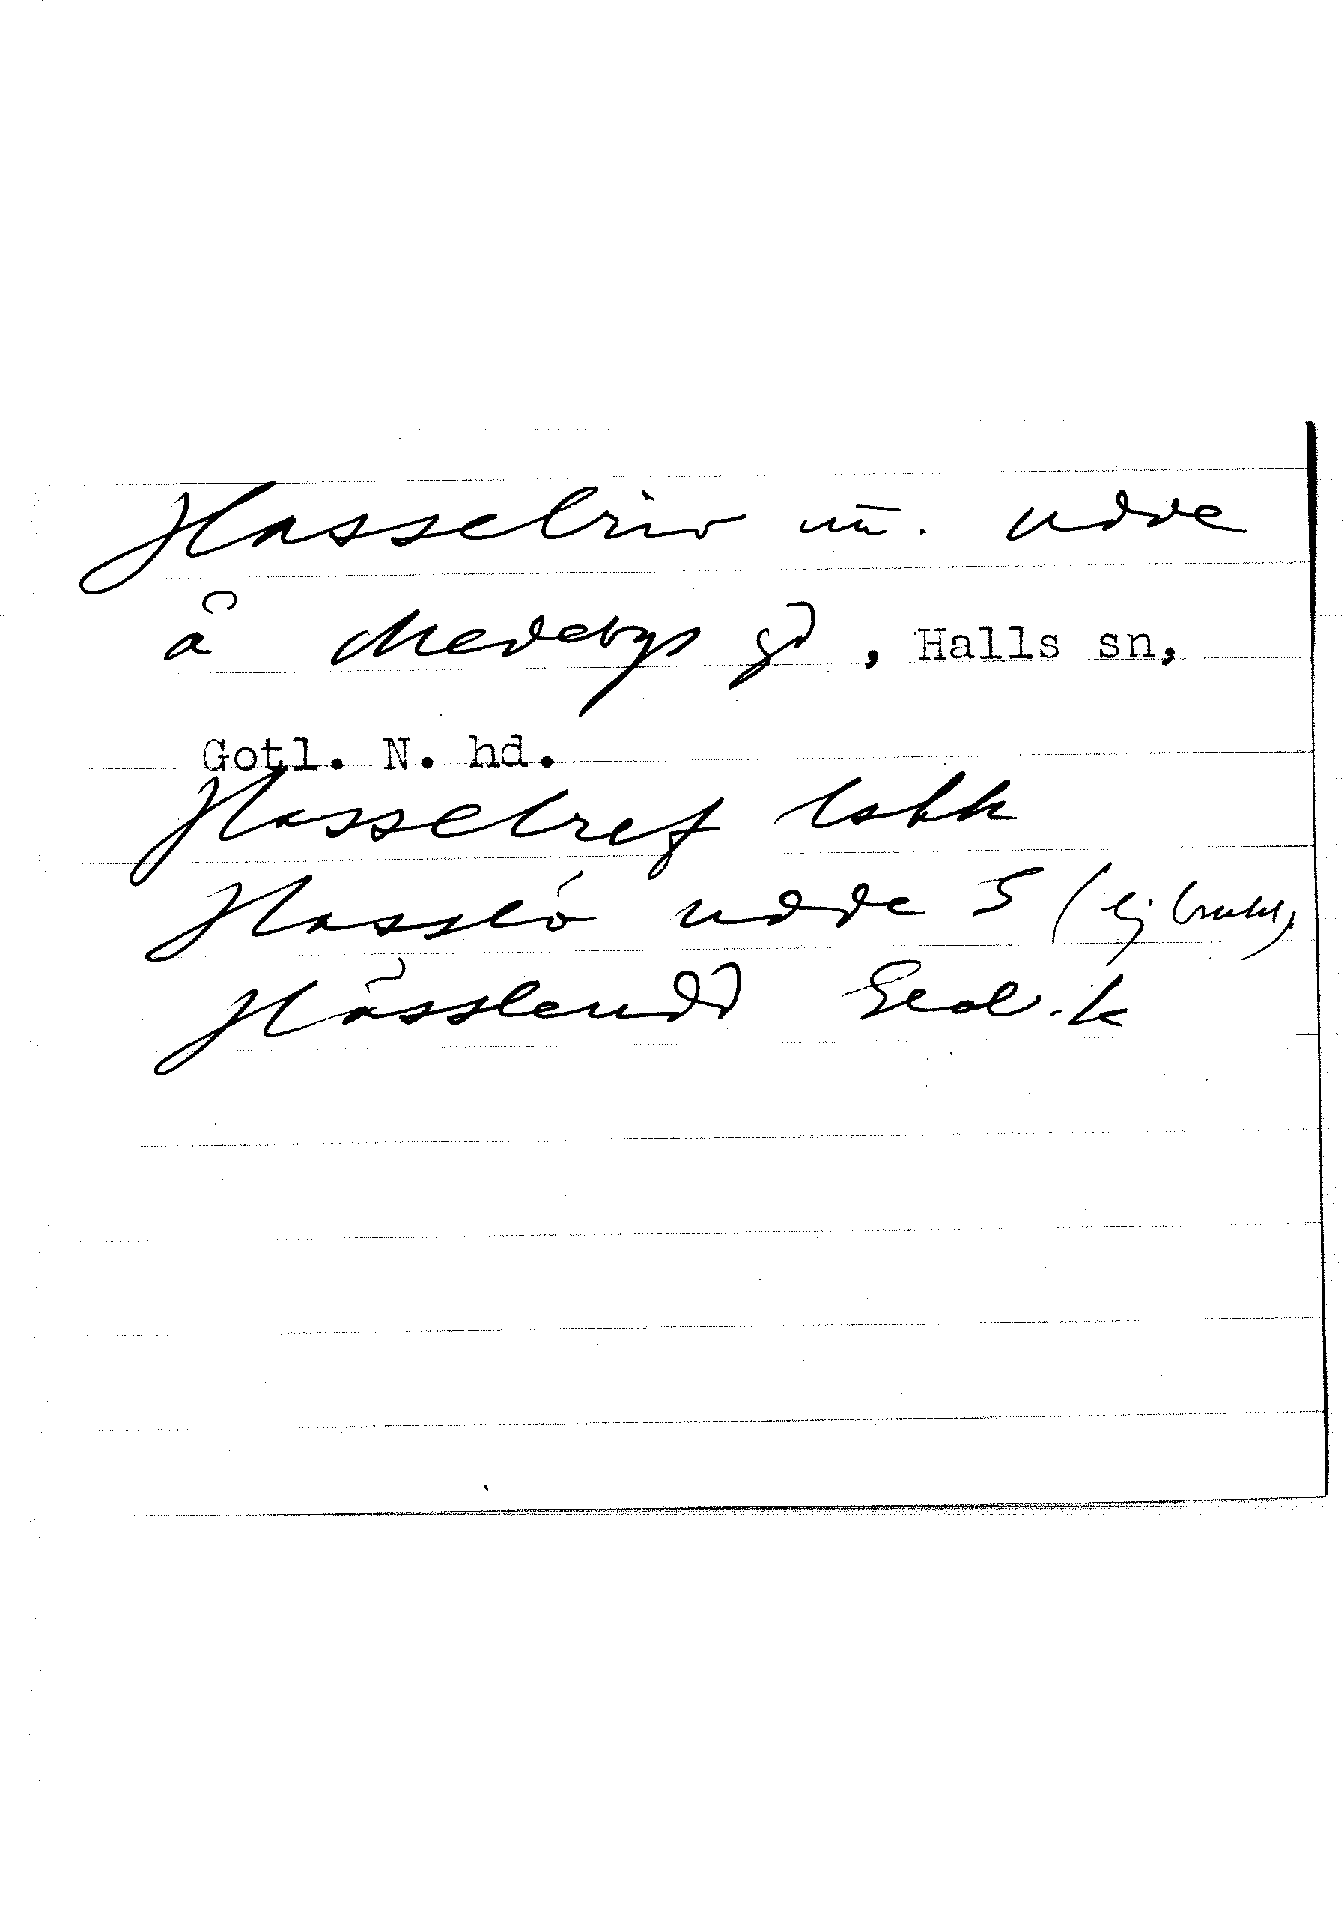 Hasselriv un. udde
å Medebys gd, Halls sn,
Gotl. N. hd.
Hasselref
Hasslö udde S (ej brukl)
Hässleudd Geol. k